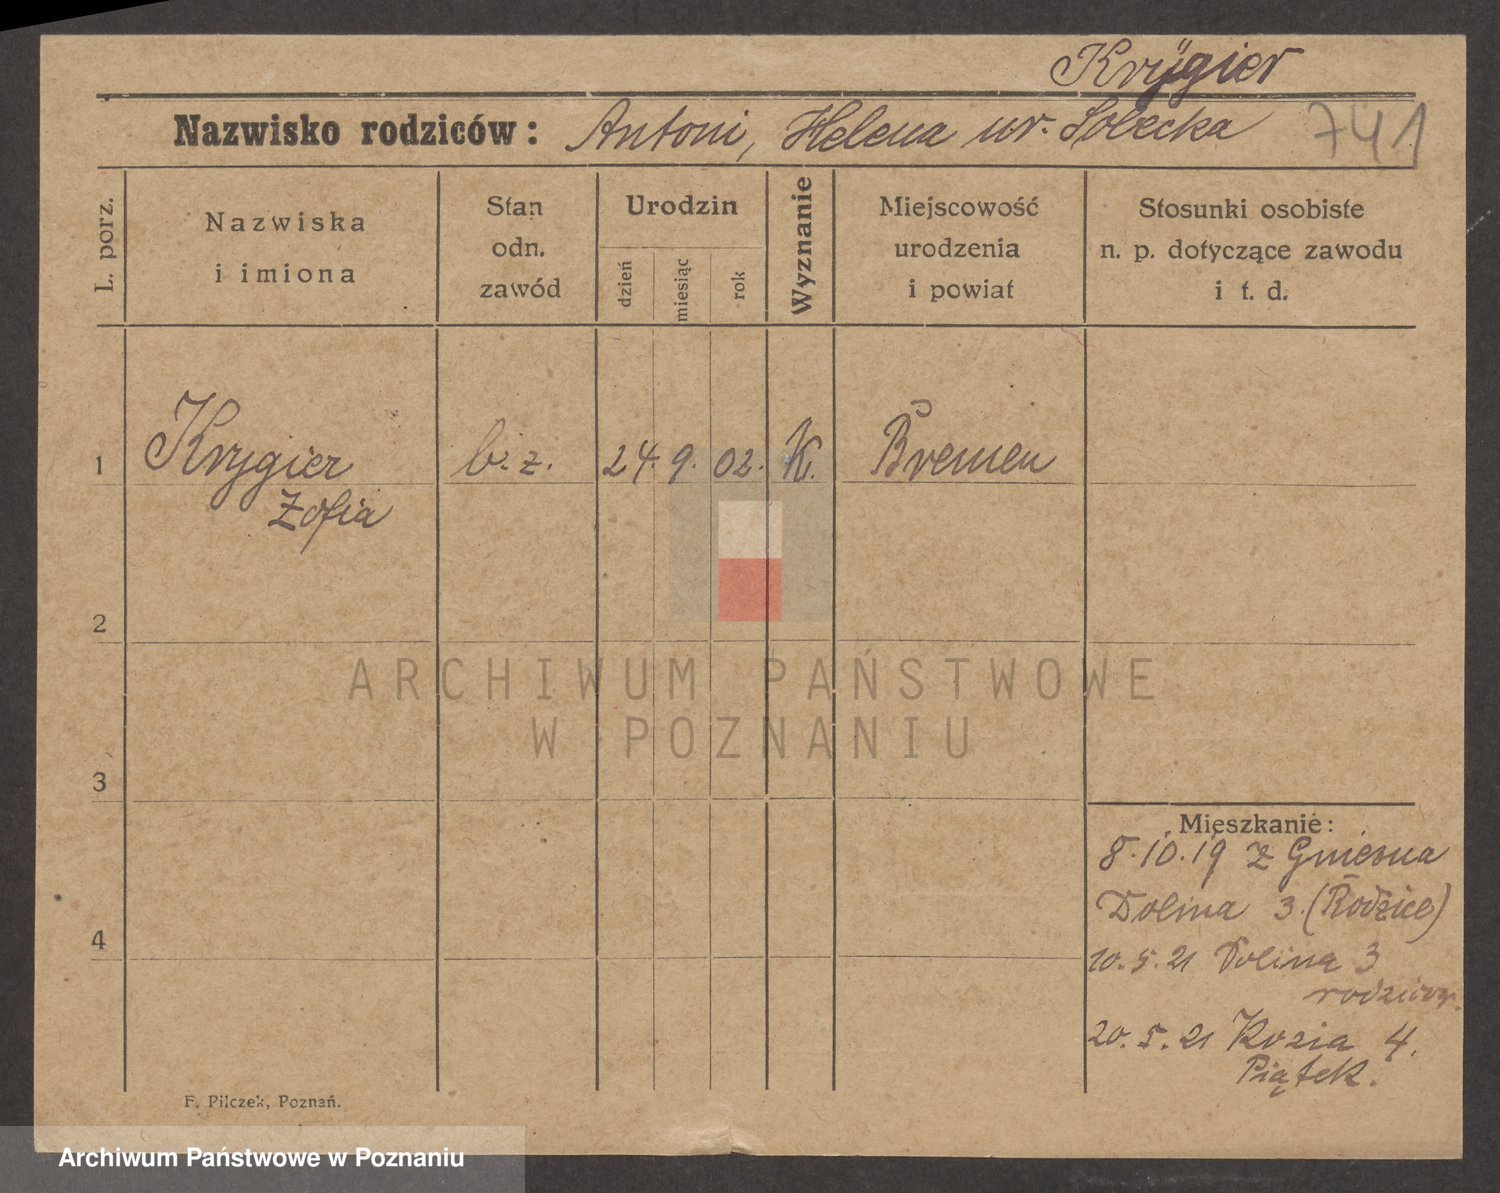 Krygier
Nazwisko rodziców: Antoni, Helena ur. Sobecka 741
L. porz.
Nazwiska
i imiona
Stan
odn.
zawód
Urodzin
dzień
miesiąc
rok
Wyznanie
Miejscowość
urodzenia
i powiat
Stosunki osobiste
n. p. dotyczące zawodu
i t. d.
1 Krygier b. z. 24. 9. 02. K. Bremen
Zofia
2
ARCHIWUM PAŃSTWOWE
W POZNANIU
3
Mieszkanie:
8.10.19 z Gniesna
Dolina 3 (Rodzice)
4
10.5.21 Dolina 3
20.5.21 Kozia 4.
Piątek.
F. Pilczek, Poznań.
Archiwum Państwowe w Poznaniu